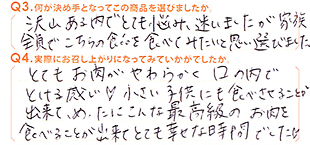 Q3.何が決め手となってこの商品を選びましたか。
沢山ある内でとても悩み、迷いましたが家族
全員でこちらの食べを食べてみたいと思い選びました
Q4.実際にお召し上がりになってみていかがでしたか。
とてもお肉がやわらかくて口の内で
とける感じ♡小さい子供にも食べさせることが
出来て、め.たにこんな最高級のお肉を
食べることが出来てとても幸せな時間でした